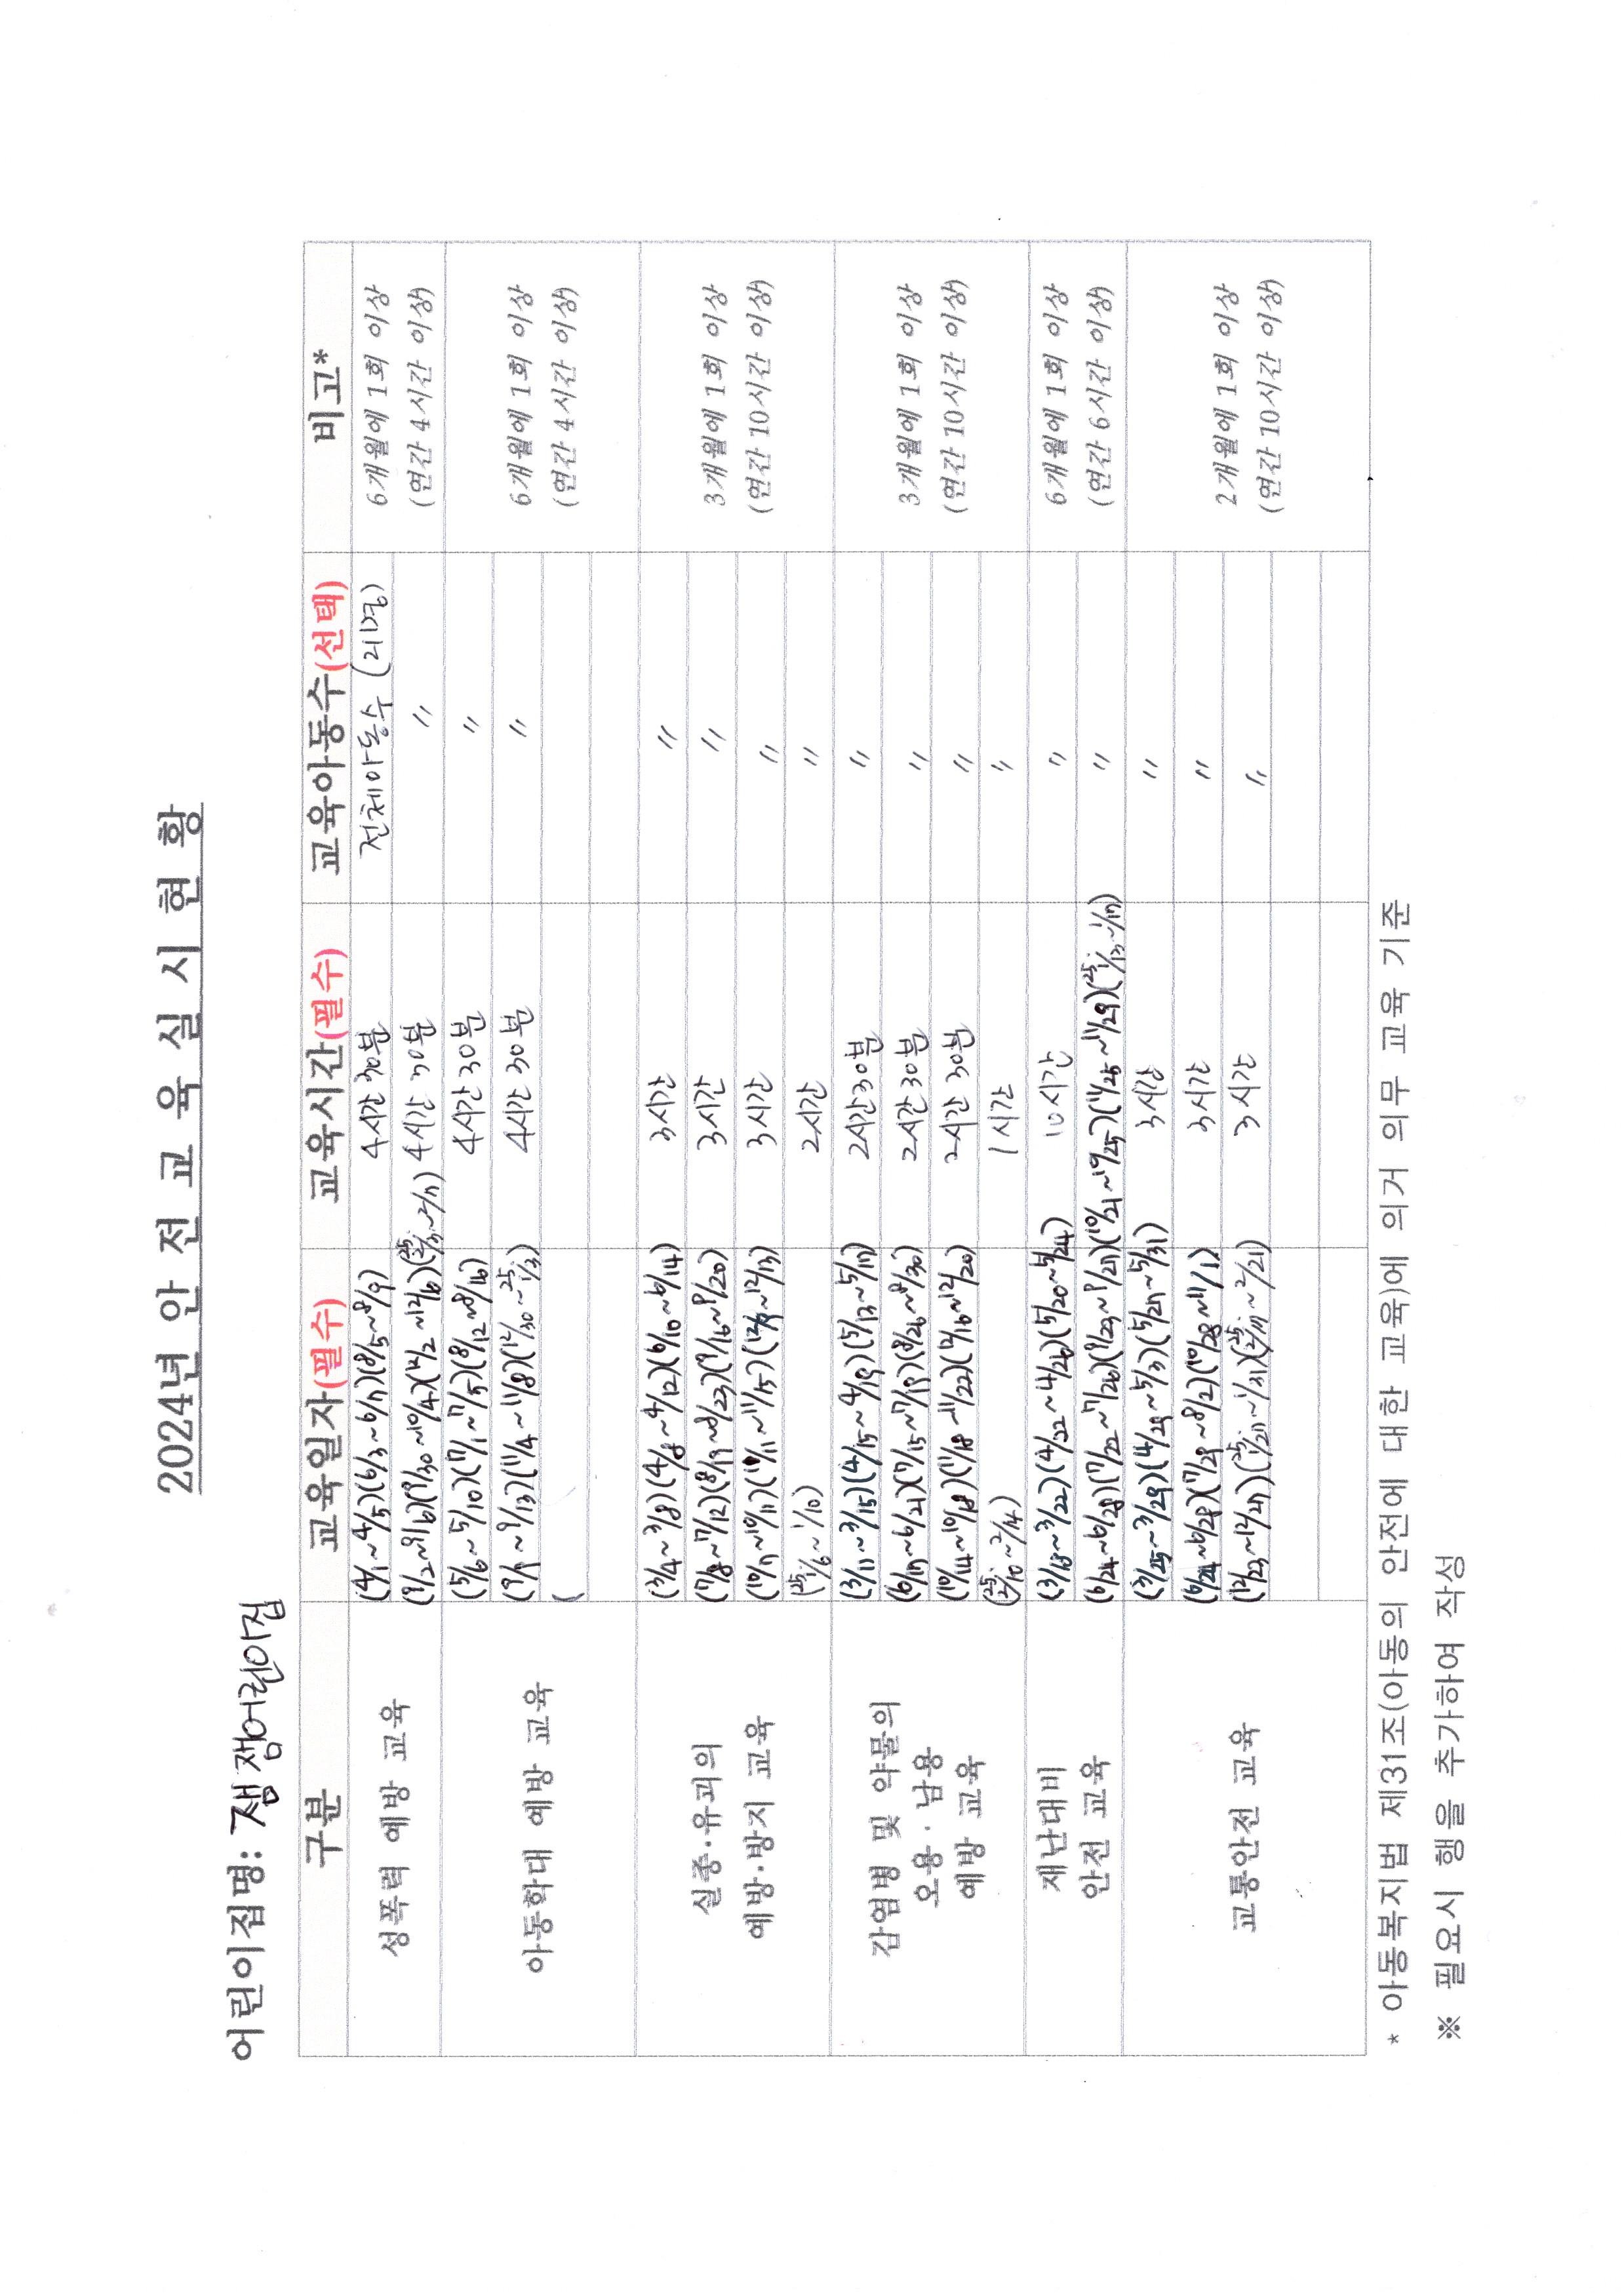 2024년 안 전 교 육 실 시 현 황
어린이집명: 잼잼어린이집
구분 교육일자(필수) 교육시간(필수) 교육아동수(선택) 비고*
성폭력 예방 교육
(4/1~4/5)(6/3~6/7)(8/5~8/9) 4시간 30분 전체아동수 (21명)
(9/2~9/6)(9/30~10/4)(12/2~12/6)(25. 2/3~2/7) 4시간 30분 〃
6개월에 1회 이상
(연간 4시간 이상)
아동학대 예방 교육
(5/6~5/10)(7/1~7/5)(8/12~8/16) 4시간 30분 〃
(9/9~9/13)(11/4~11/8)(12/30~25. 1/3) 4시간 30분 〃
(
6개월에 1회 이상
(연간 4시간 이상)
실종·유괴의
예방·방지 교육
(3/4~3/8)(4/8~4/12)(6/10~6/14) 3시간 〃
(7/8~7/12)(8/19~8/23)(9/16~9/20) 3시간 〃
(10/7~10/11)(11/11~11/15)(12/9~12/13) 3시간 〃
(25. 1/6~1/10) 2시간 〃
3개월에 1회 이상
(연간 10시간 이상)
감염병 및 약물의
오용·남용
예방 교육
(3/11~3/15)(4/15~4/19)(5/13~5/17) 2시간30분 〃
(6/17~6/21)(7/15~7/19)(8/26~8/30) 2시간 30분 〃
(10/14~10/18)(11/18~11/22)(12/16~12/20) 2시간 30분 〃
(25. 2/10~2/14) 1시간 〃
3개월에 1회 이상
(연간 10시간 이상)
재난대비
안전 교육
(3/18~3/22)(4/22~4/26)(5/20~5/24) 10시간 〃
(6/24~6/28)(7/22~7/26)(9/23~9/27)(10/21~10/25)(11/25~11/29)(25. 1/13~1/17) 〃
6개월에 1회 이상
(연간 6시간 이상)
교통안전 교육
(3/25~3/29)(4/29~5/3)(5/27~5/31) 3시간 〃
(6/24~6/28)(7/29~8/2)(10/28~11/1) 3시간 〃
(12/23~12/27)(25. 1/27~1/31)(25. 2/17~2/21) 3시간 〃
2개월에 1회 이상
(연간 10시간 이상)
* 아동복지법 제31조(아동의 안전에 대한 교육)에 의거 의무 교육 기준
※ 필요시 행을 추가하여 작성